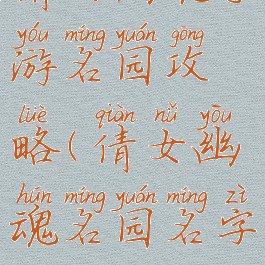 yóu míng yuán gōng
游名园攻
lüè qiàn nǚ yōu
略(倩女幽
hún míng yuán míng zì
魂名园名字